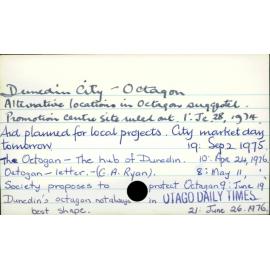 Dunedin City - Octagon
Alternative locations in Octagon suggested.
Promotion centre site ruled out. 1: Je 28, 1974.
Aid planned for local projects. City market day
tomorrow 19: Sep 2 1975.
The Octagon - The hub of Dunedin. 10: Apr 24, 1976.
Octagon - letter. - (C. A. Ryan). 8: May 11, "
Society proposes to protect Octagon 9: June 19
Dunedin's octagon not always in OTAGO DAILY TIMES
best shape. 21: June 26. 1976.